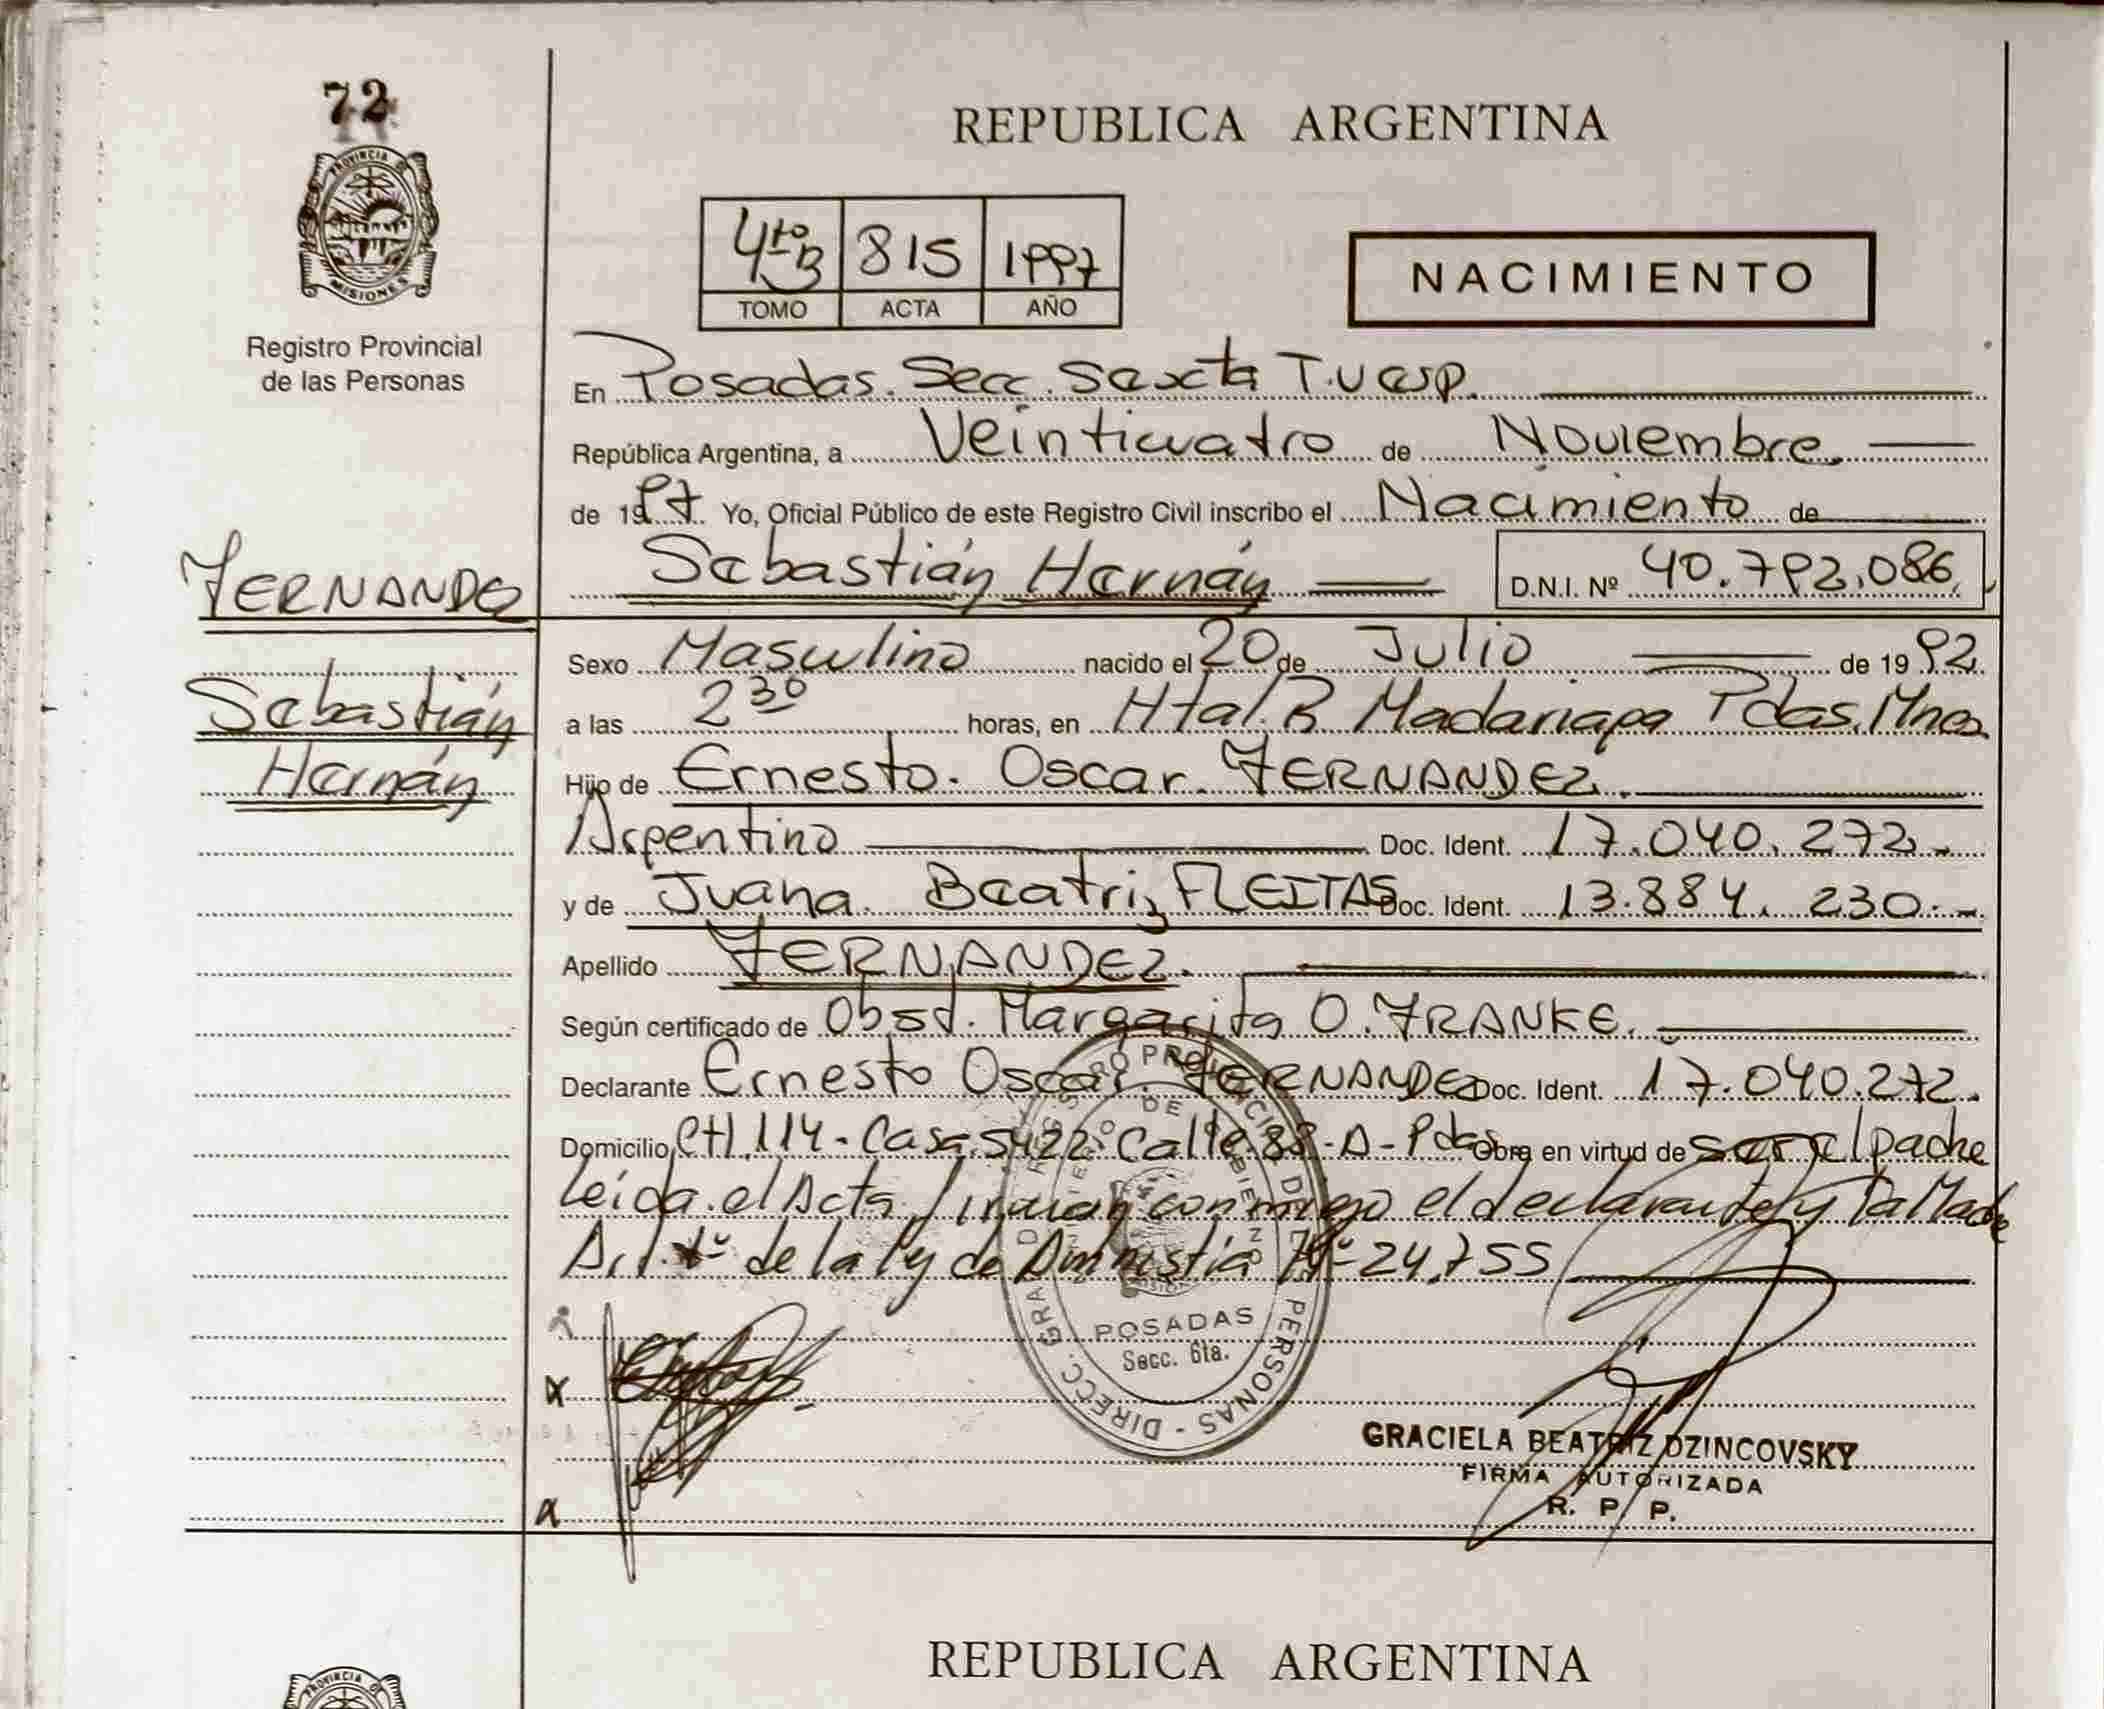 72
PROVINCIA DE
MISIONES
Registro Provincial
de las Personas
REPUBLICA ARGENTINA
4to B 815 1997
TOMO ACTA AÑO
NACIMIENTO
En Posadas. Secc. Sexta T.
República Argentina, a Veinticuatro de Noviembre.
de 1997 Yo, Oficial Público de este Registro Civil inscribo el Nacimiento de
FERNANDEZ
Sebastián Hernán D.N.I. Nº 40.792.086
Sexo Masculino nacido el 20 de Julio de 1992
Sebastián
a las 23º horas, en Htal. R Madariaga Pdas. Mnes
Hernán
Hijo de Ernesto. Oscar. FERNANDEZ.
Argentino Doc. Ident. 17.040.272.-
y de Juana. Beatriz FLEITAS Doc. Ident. 13.884.230.-
Apellido FERNANDEZ.
Según certificado de Obst. Margarita O. FRANKE.
Declarante Ernesto Oscar. FERNANDEZ Doc. Ident. 17.040.272.
Domicilio CH.114-Casa 5422-Calle 88-A-Pdas Obra en virtud de ser el padre
leída el Acta firman conmigo el declarante y la Madre
Art. 1º de la ley de Amnistía Nº 24.755
POSADAS
Secc. 6ta.
DIRECC. GRAL. DEL REGISTRO PROVINCIAL DE LAS PERSONAS
GRACIELA BEATRIZ DZINCOVSKY
FIRMA AUTORIZADA
R. P. P.
REPUBLICA ARGENTINA
PROVINCIA